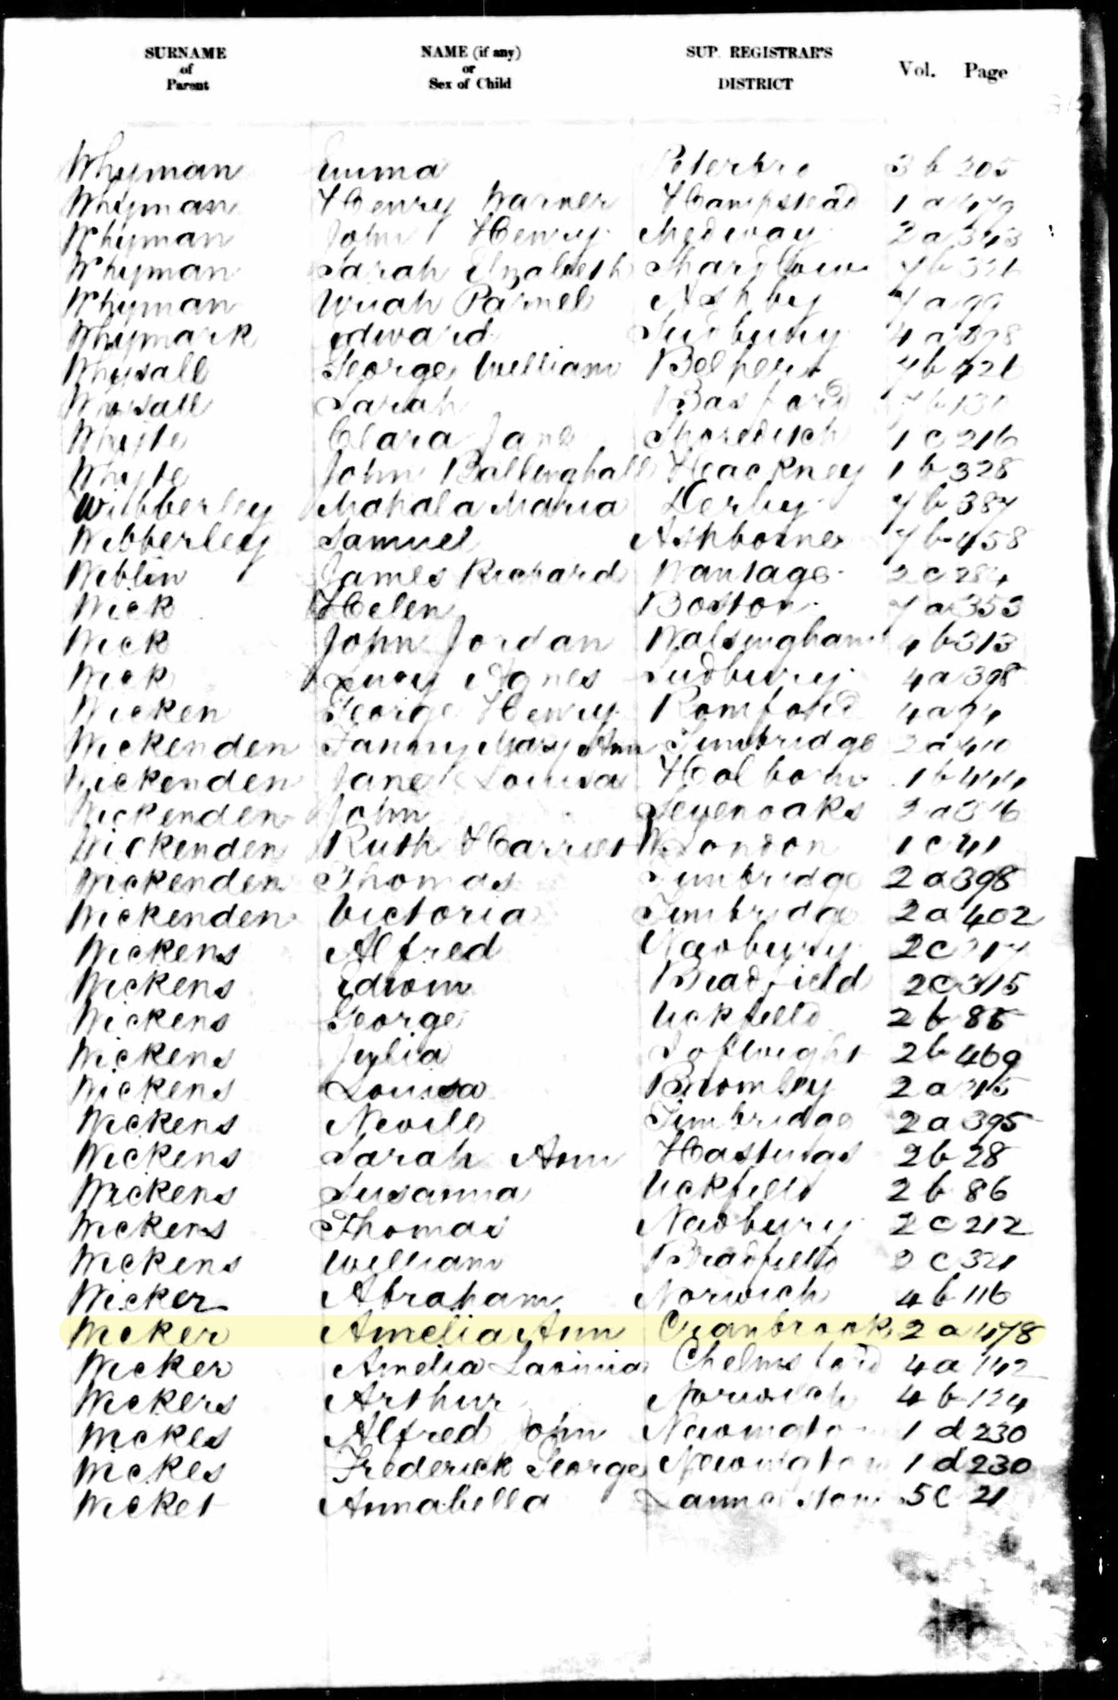 SURNAME of Parent NAME (if any) or Sex of Child SUP. REGISTRAR'S DISTRICT Vol. Page
Whyman Emma Peterbro 3 b 205
Whyman Henry Warner Hampstead 1 a 479
Whyman John Henry Medway 2 a 343
Whyman Sarah Elizabeth Shardlow 7 b 321
Whyman Uriah Parnel Ashby 7 a 99
Whymark Edward Sudbury 4 a 398
Whysall George William Belper 7 b 421
Whysall Sarah Basford 7 b 131
Whyte Clara Jane Shoreditch 1 c 216
Whyte John Ballinghall Hackney 1 b 328
Wibberley Mahala Maria Derby 7 b 387
Wibberley Samuel Ashborne 7 b 458
Wiblin James Richard Wantage 2 c 284
Wick Helen Boston 7 a 353
Wick John Jordan Walsingham 4 b 313
Wick Lucy Agnes Sudbury 4 a 398
Wicken George Henry Romford 4 a
Wickenden Fanny Mary Ann Tunbridge 2 a 410
Wickenden Jane Louisa Holborn 1 b 444
Wickenden John Sevenoaks 2 a 316
Wickenden Ruth Harriet London 1 c 41
Wickenden Thomas Tunbridge 2 a 398
Wickenden Victoria Tunbridge 2 a 402
Wickens Alfred Newbury 2 c
Wickens Edwin Bradfield 2 c 315
Wickens George Uckfield 2 b 85
Wickens Julia 2 b 469
Wickens Louisa Bromley 2 a
Wickens Nevill Tunbridge 2 a 395
Wickens Sarah Ann Hastings 2 b 28
Wickens Susanna Uckfield 2 b 86
Wickens Thomas Newbury 2 c 212
Wickens William Bradfield 2 c 321
Wicker Abraham Norwich 4 b 116
Wicker Amelia Ann Cranbrook 2 a 478
Wicker Amelia Lavinia Chelmsford 4 a 142
Wickers Arthur Norwich 4 b 124
Wickes Alfred John Newington 1 d 230
Wickes Frederick George Newington 1 d 230
Wicket Annabella Launceston 5 c 21